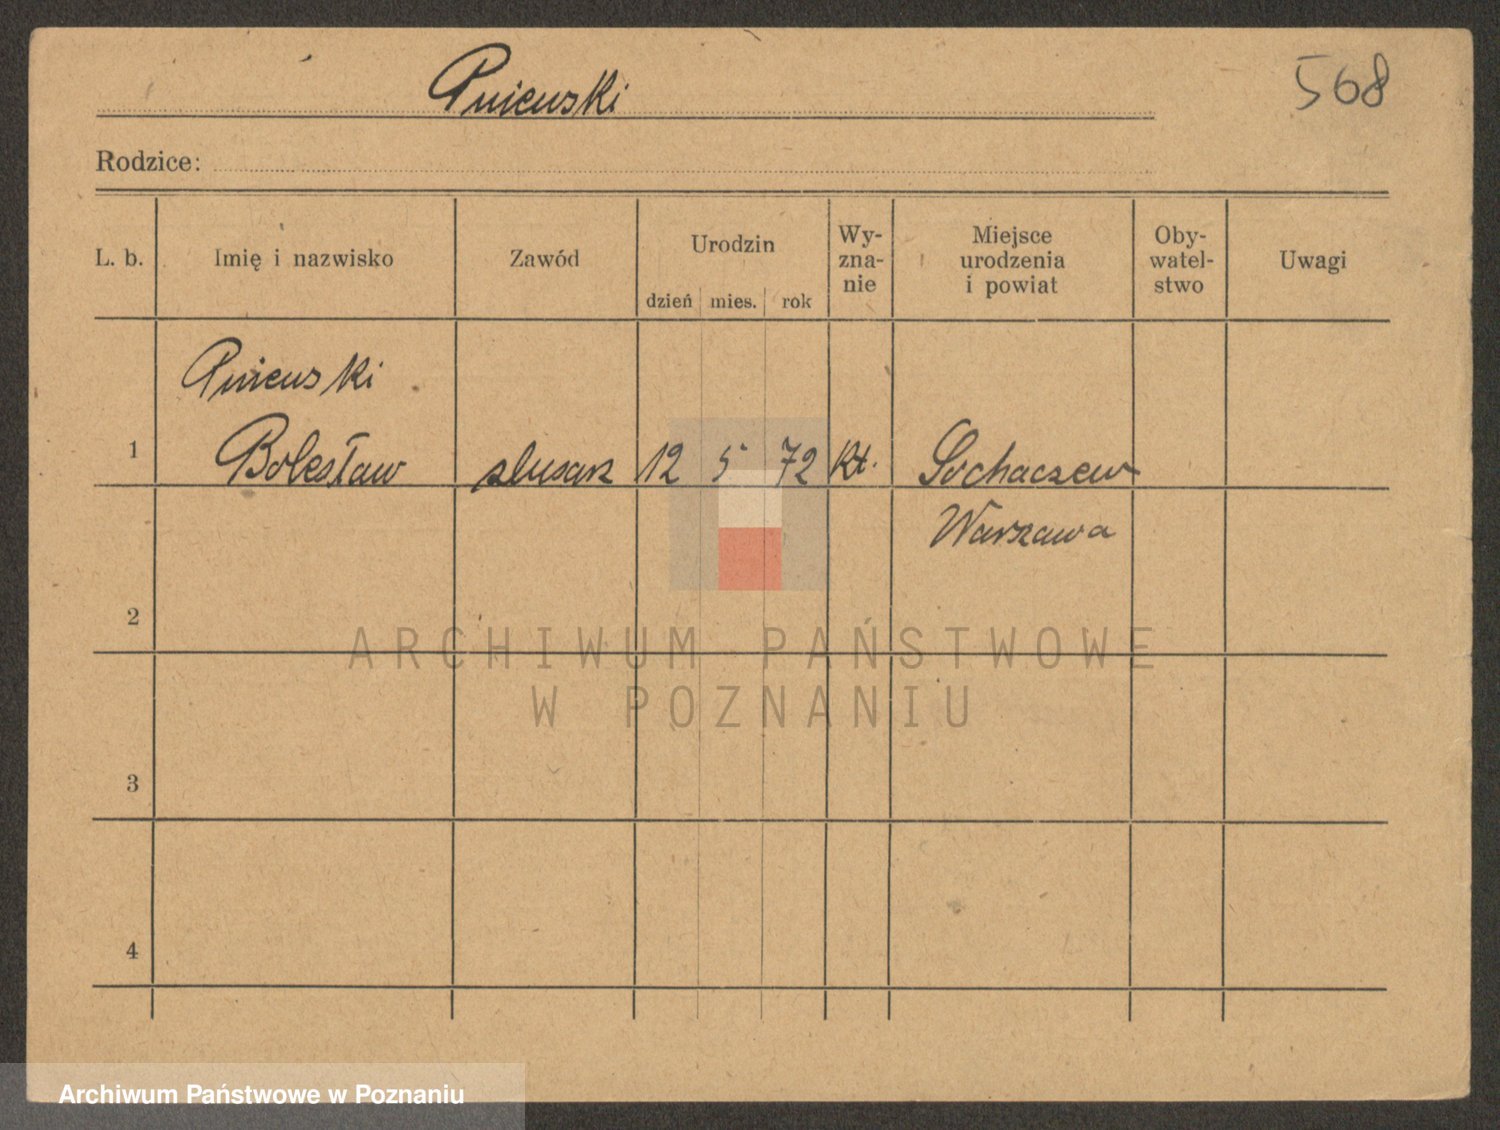 Pniewski
568
Rodzice:
L. b.
Imię i nazwisko
Zawód
Urodzin
dzień mies. rok
Wy-
zna-
nie
Miejsce
urodzenia
i powiat
Oby-
watel-
stwo
Uwagi
Pniewski
1 Bolesław ślusarz 12 5 72 kt. Sochaczew
Warszawa
2
ARCHIWUM PAŃSTWOWE
W POZNANIU
3
4
Archiwum Państwowe w Poznaniu